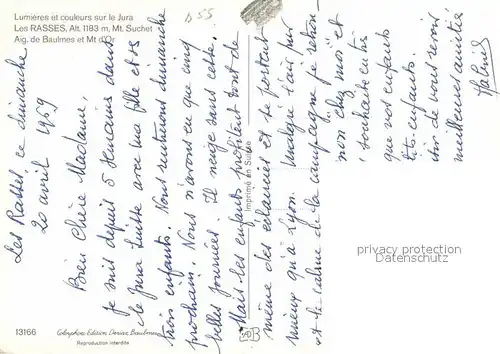 Lumières et couleurs sur le Jura
Les RASSES, Alt. 1183 m, Mt. Suchet
Aig. de Baulmes et Mt d'Or
Les Rasses, ce dimanche
20 avril 1969
Bien Chère Madame,
Je suis depuis 5 semaines dans
le Jura Suisse avec ma fille et ses
trois enfants. Nous rentrons dimanche
prochain. Nous n'avons eu que cinq
belles journées. Il neige sans cesse.
Mais les enfants profitent tout de
même des éclaircies et se portent
mieux qu'à Lyon. Malgré l'air pur
et le calme de la campagne je
non chez moi et
souhaite
que vos enfants
enfants.
de vous revoir
meilleures amitiés
Imprimé en Suisse
13166
Colorphoto Edition
Reproduction interdite
privacy protection
Datenschutz